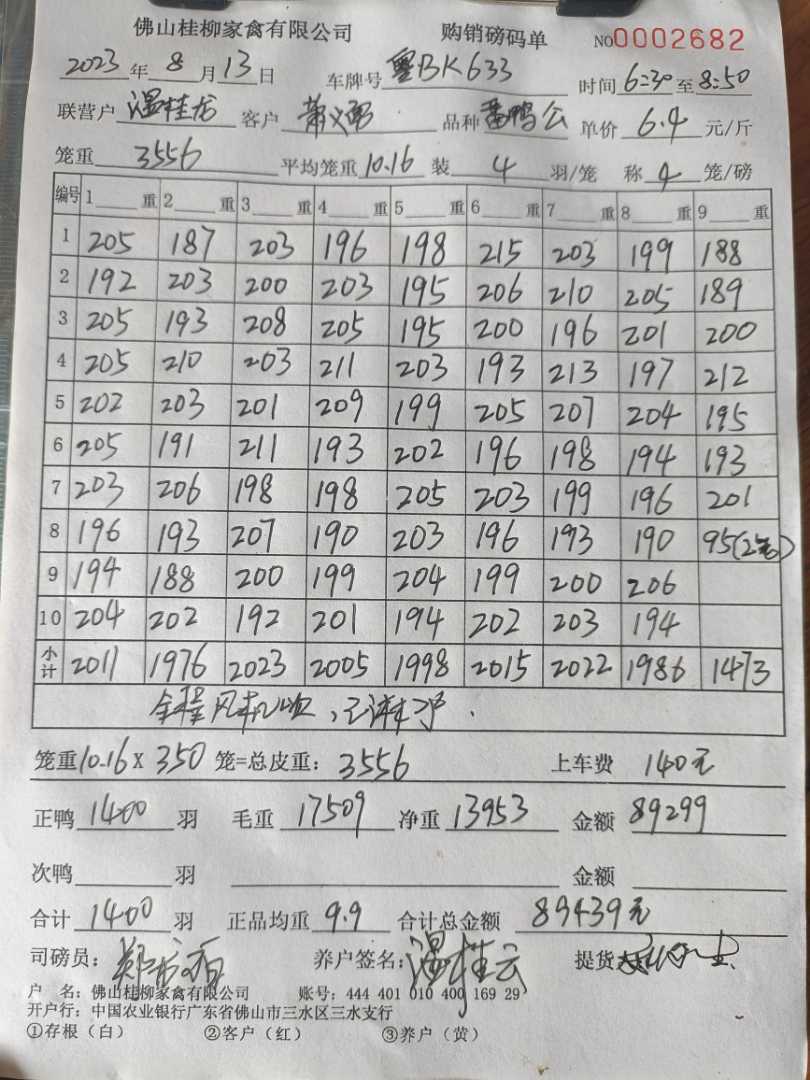 佛山桂柳家禽有限公司 购销磅码单 NO0002682
2023年8月13日 车牌号 粤BK633 时间 6:30至8:50
联营户 温桂龙 客户 萧 品种 番鸭公 单价 6.4 元/斤
笼重 3556 平均笼重 10.16 装 4 羽/笼 称 4 笼/磅
编号 1 重 2 重 3 重 4 重 5 重 6 重 7 重 8 重 9 重
1 205 187 203 196 198 215 203 199 188
2 192 203 200 203 195 206 210 205 189
3 205 193 208 205 195 200 196 201 200
4 205 210 203 211 203 193 213 197 212
5 202 203 201 209 199 205 207 204 195
6 205 191 211 193 202 196 198 194 193
7 203 206 198 198 205 203 199 196 201
8 196 193 207 190 203 196 193 190 95(2笼)
9 194 188 200 199 204 199 200 206
10 204 202 192 201 194 202 203 194
小计 2011 1976 2023 2005 1998 2015 2022 1986 1473
全程风机吹,已淋
笼重10.16X350笼=总皮重:3556 上车费 140元
正鸭 1400 羽 毛重 17509 净重 13953 金额 89299
次鸭 羽 金额
合计 1400 羽 正品均重 9.9 合计总金额 89439元
司磅员: 养户签名:温桂云 提货
户 名:佛山桂柳家禽有限公司 账号:444 401 010 400 169 29
开户行:中国农业银行广东省佛山市三水区三水支行
①存根(白) ②客户(红) ③养户(黄)